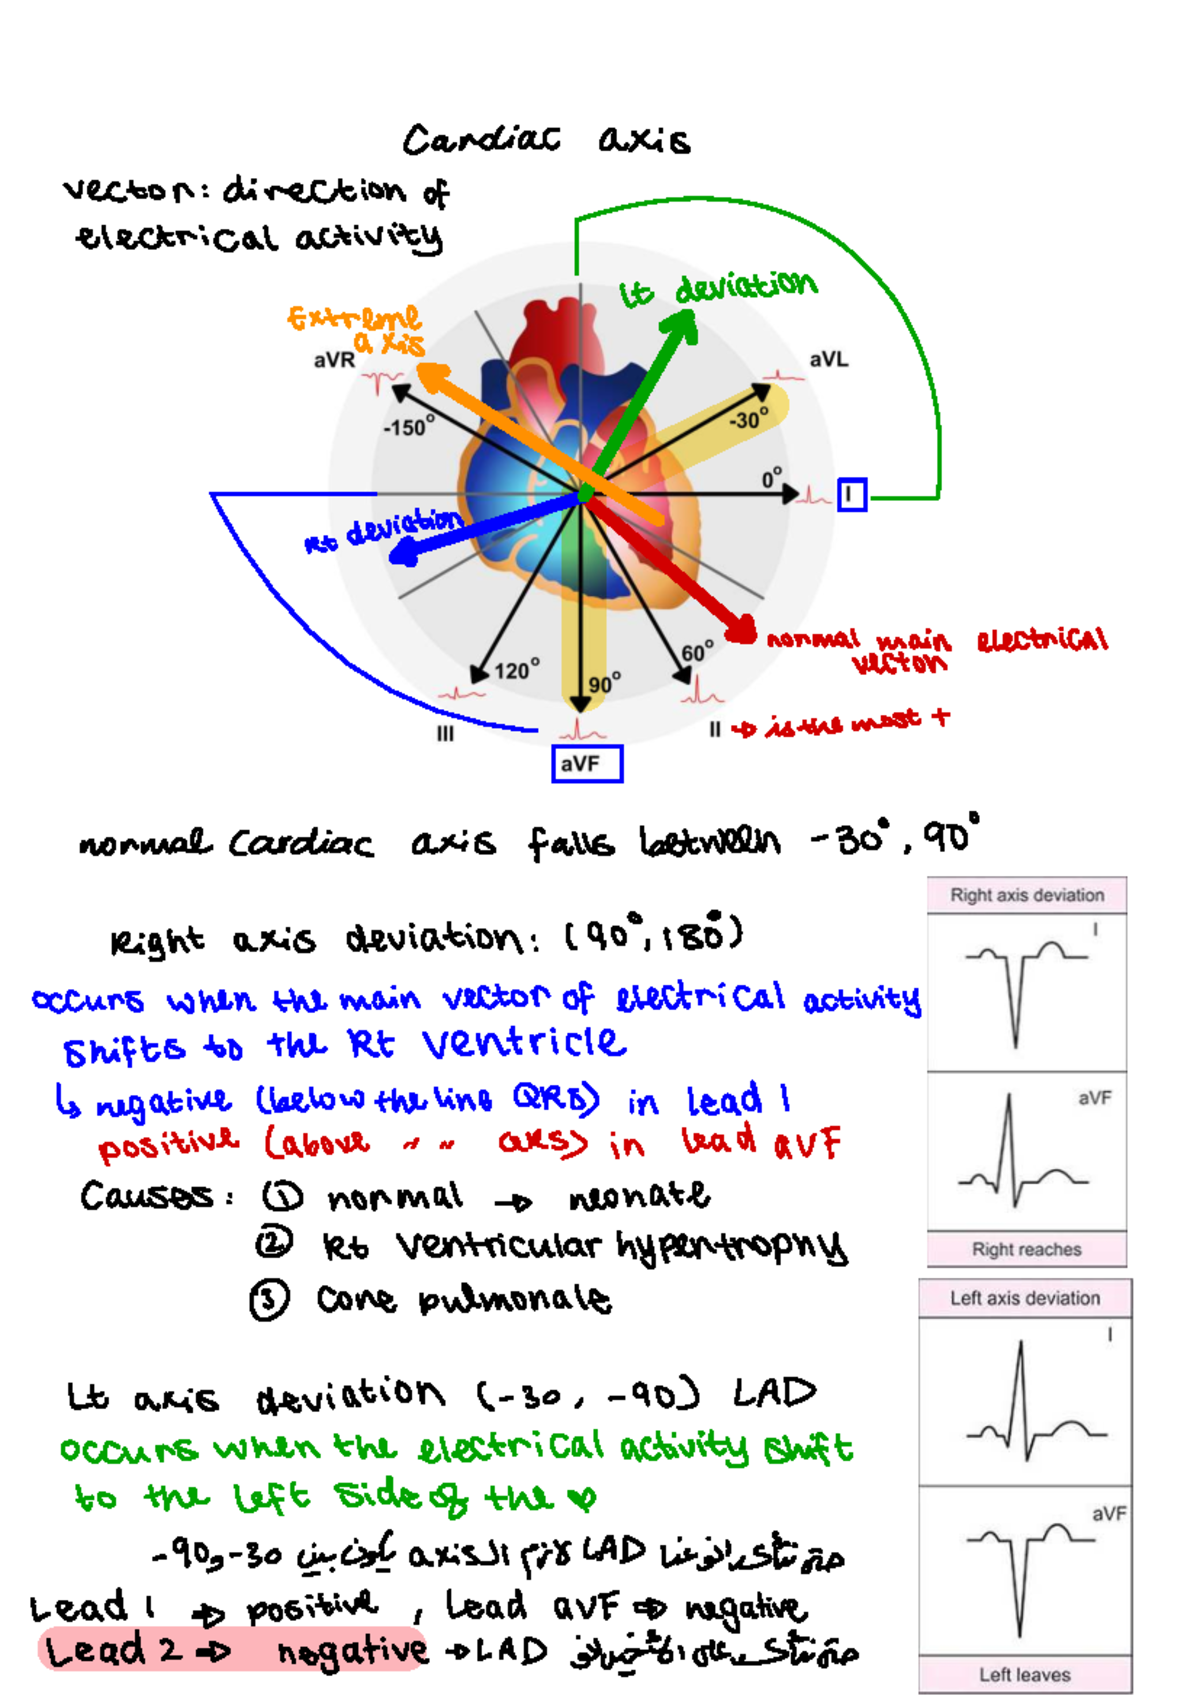 Cardiac axis
vector: direction of
electrical activity
Lt deviation
Extreme
axis
aVR
aVL
-150°
-30°
0°
I
Rt deviation
normal main electrical
vector
60°
120°
90°
III
II → is the most +
aVF
normal cardiac axis falls between -30°, 90°
Right axis deviation: (90°, 180°)
occurs when the main vector of electrical activity
shifts to the Rt ventricle
↳ negative (below the line QRS) in lead 1
positive (above " " QRS) in lead aVF
Causes: ① normal → neonate
② Rt ventricular hypertrophy
③ Core pulmonale
Right axis deviation
I
aVF
Right reaches
Lt axis deviation (-30, -90) LAD
occurs when the electrical activity shift
to the left side of the ♥
LAD لازم الـ axis يكون بين -30 و -90
Lead 1 → positive, Lead aVF → negative
Lead 2 → negative → LAD
Left axis deviation
I
aVF
Left leaves